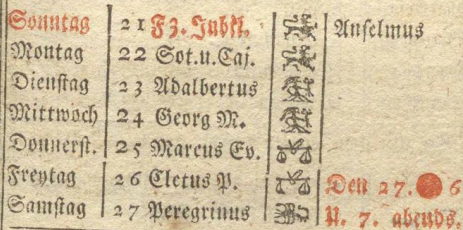 Sonntag 21 F3. Jubil. Anselmus
Montag 22 Sot.u.Caj.
Dienstag 23 Adalbertus
Mittwoch 24 Georg M.
Donnerst. 25 Marcus Ev.
Freytag 26 Cletus P. Den 27. 6
Samstag 27 Peregrinus U. 7. abends.